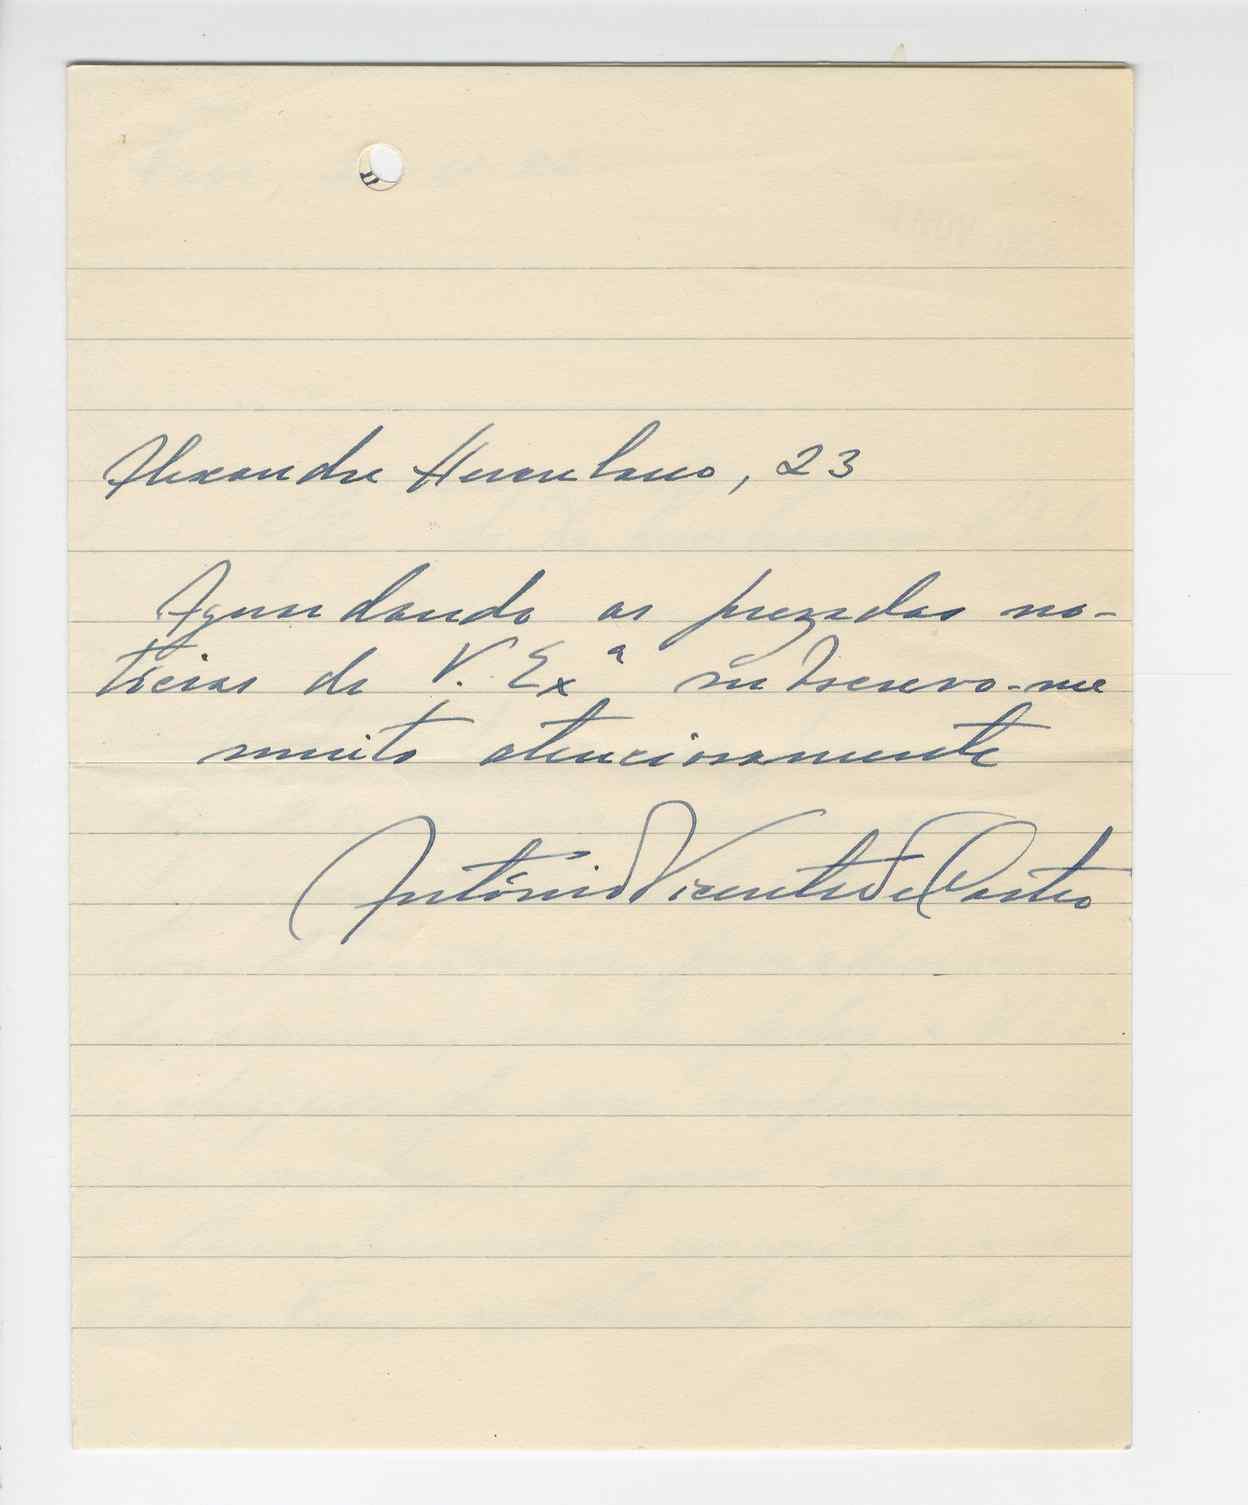 Alexandre Herculano, 23
Aguardando as prezadas no-
ticias de V. Exª subscrevo-me
muito atenciosamente
António Vicente de Castro